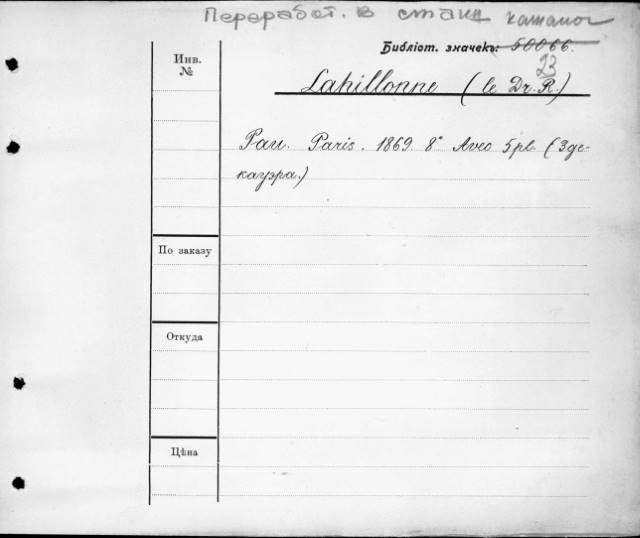 Переработ. в станц каталог
Библiот. значекъ: 50066.
23
Инв.
№
Lahillonne (le Dr. R.)
Pau. Paris. 1869. 8° Avec 5 pl. (Зде-
кауэра.)
По заказу
Откуда
Цѣна